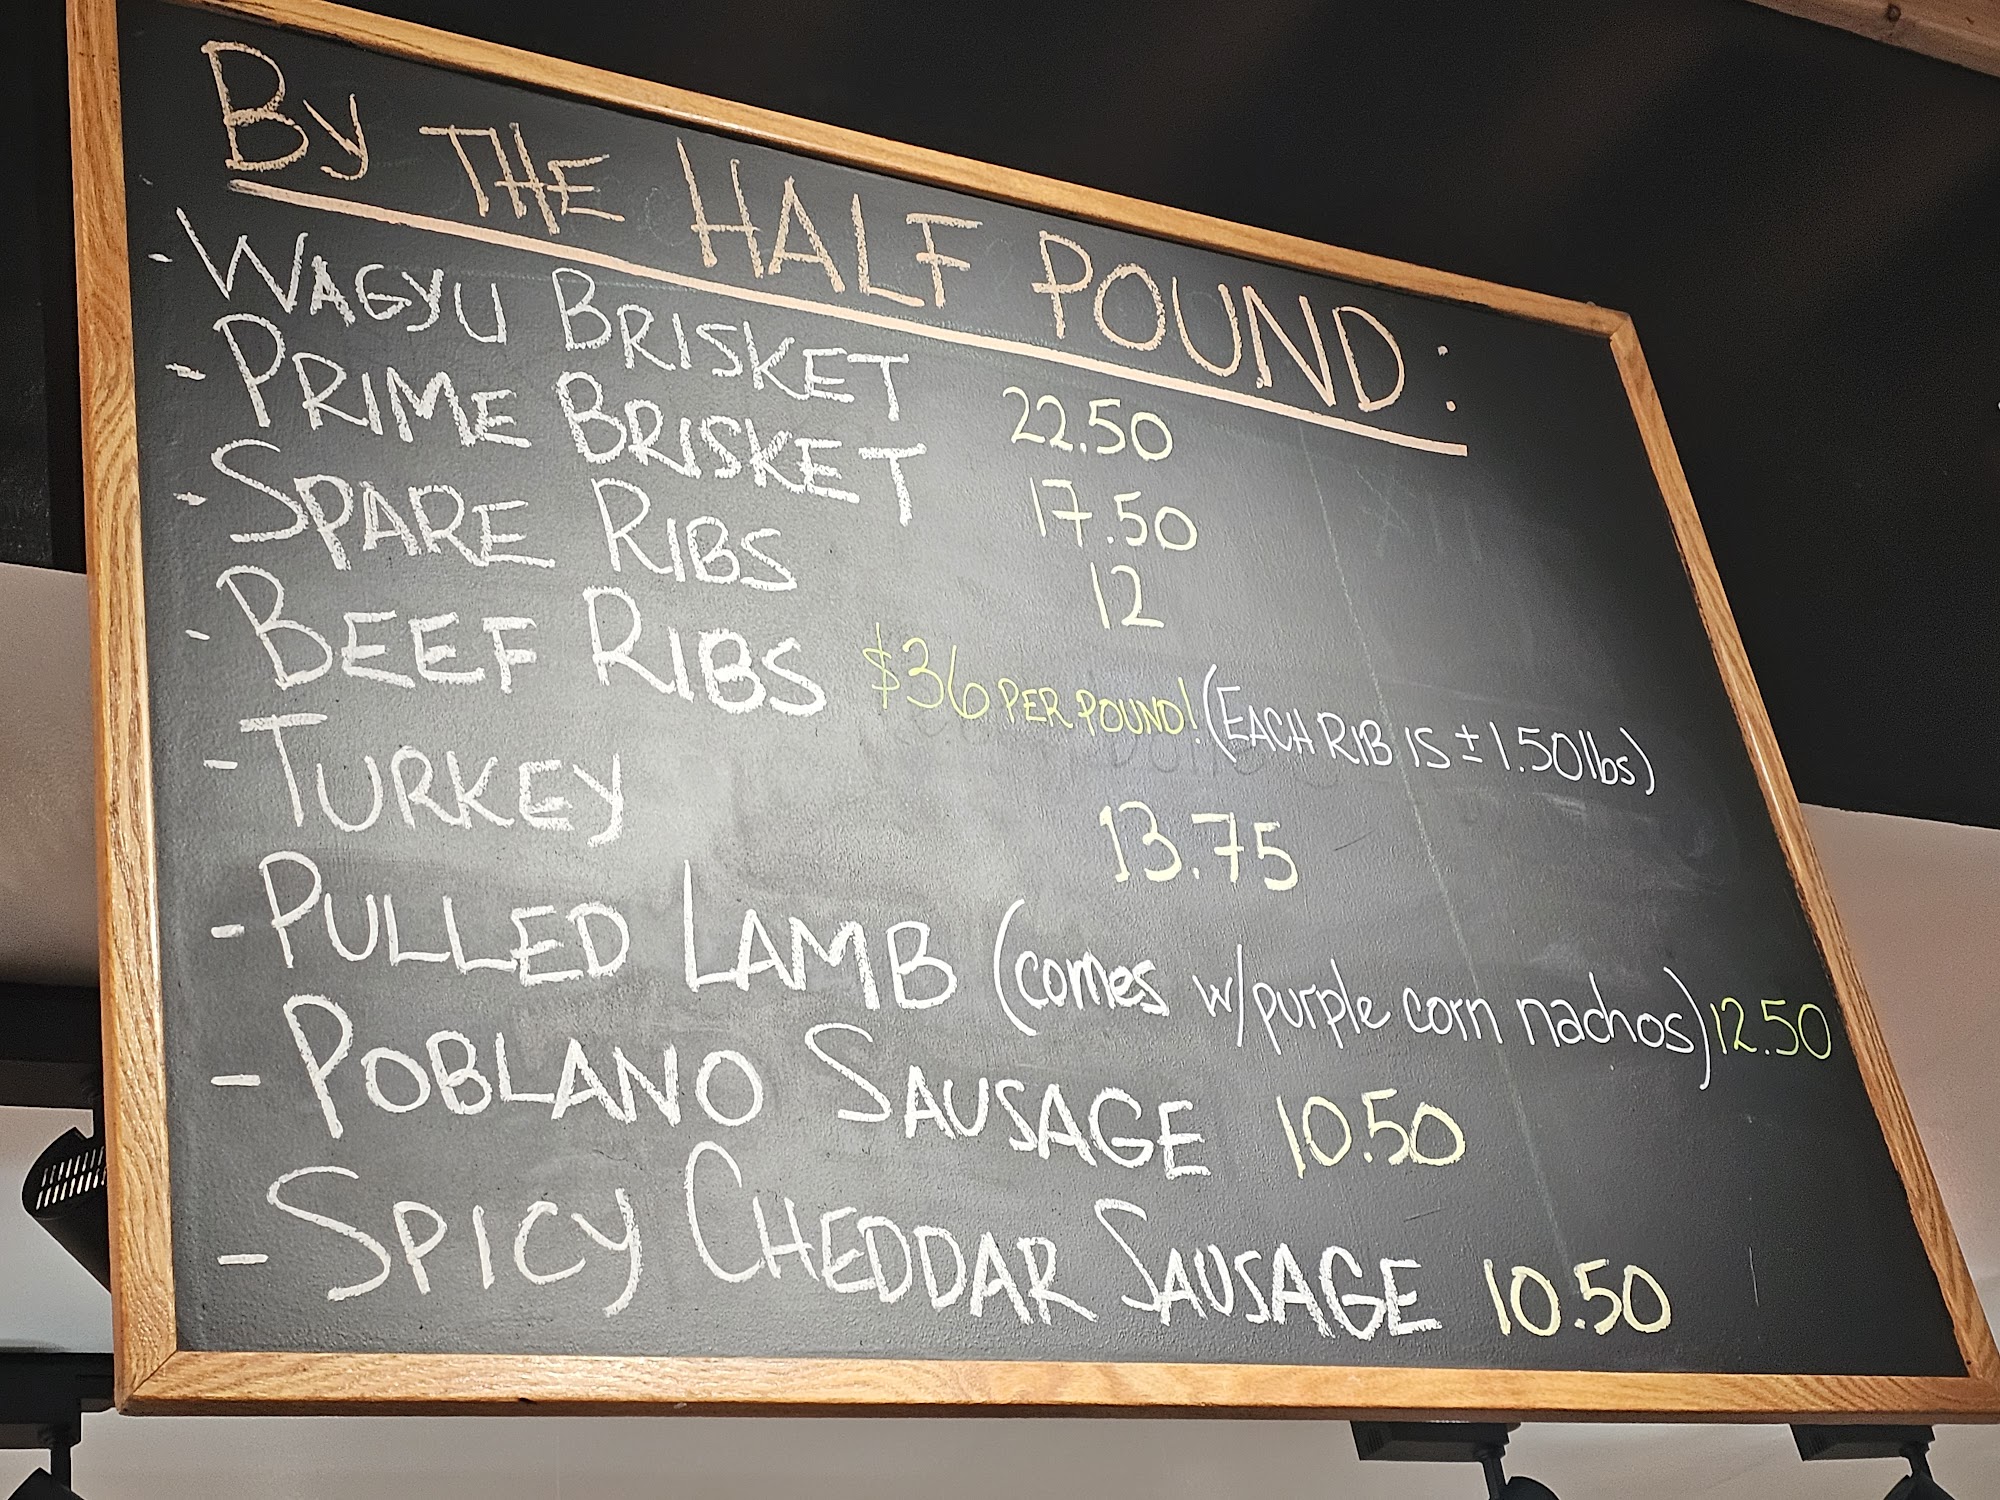 By THE HALF POUND:
- WAGYU BRISKET 22.50
- PRIME BRISKET 17.50
- SPARE RIBS 12
- BEEF RIBS $36 PER POUND! (EACH RIB IS ± 1.50lbs)
- TURKEY 13.75
- PULLED LAMB (comes w/purple corn nachos) 12.50
- POBLANO SAUSAGE 10.50
- SPICY CHEDDAR SAUSAGE 10.50